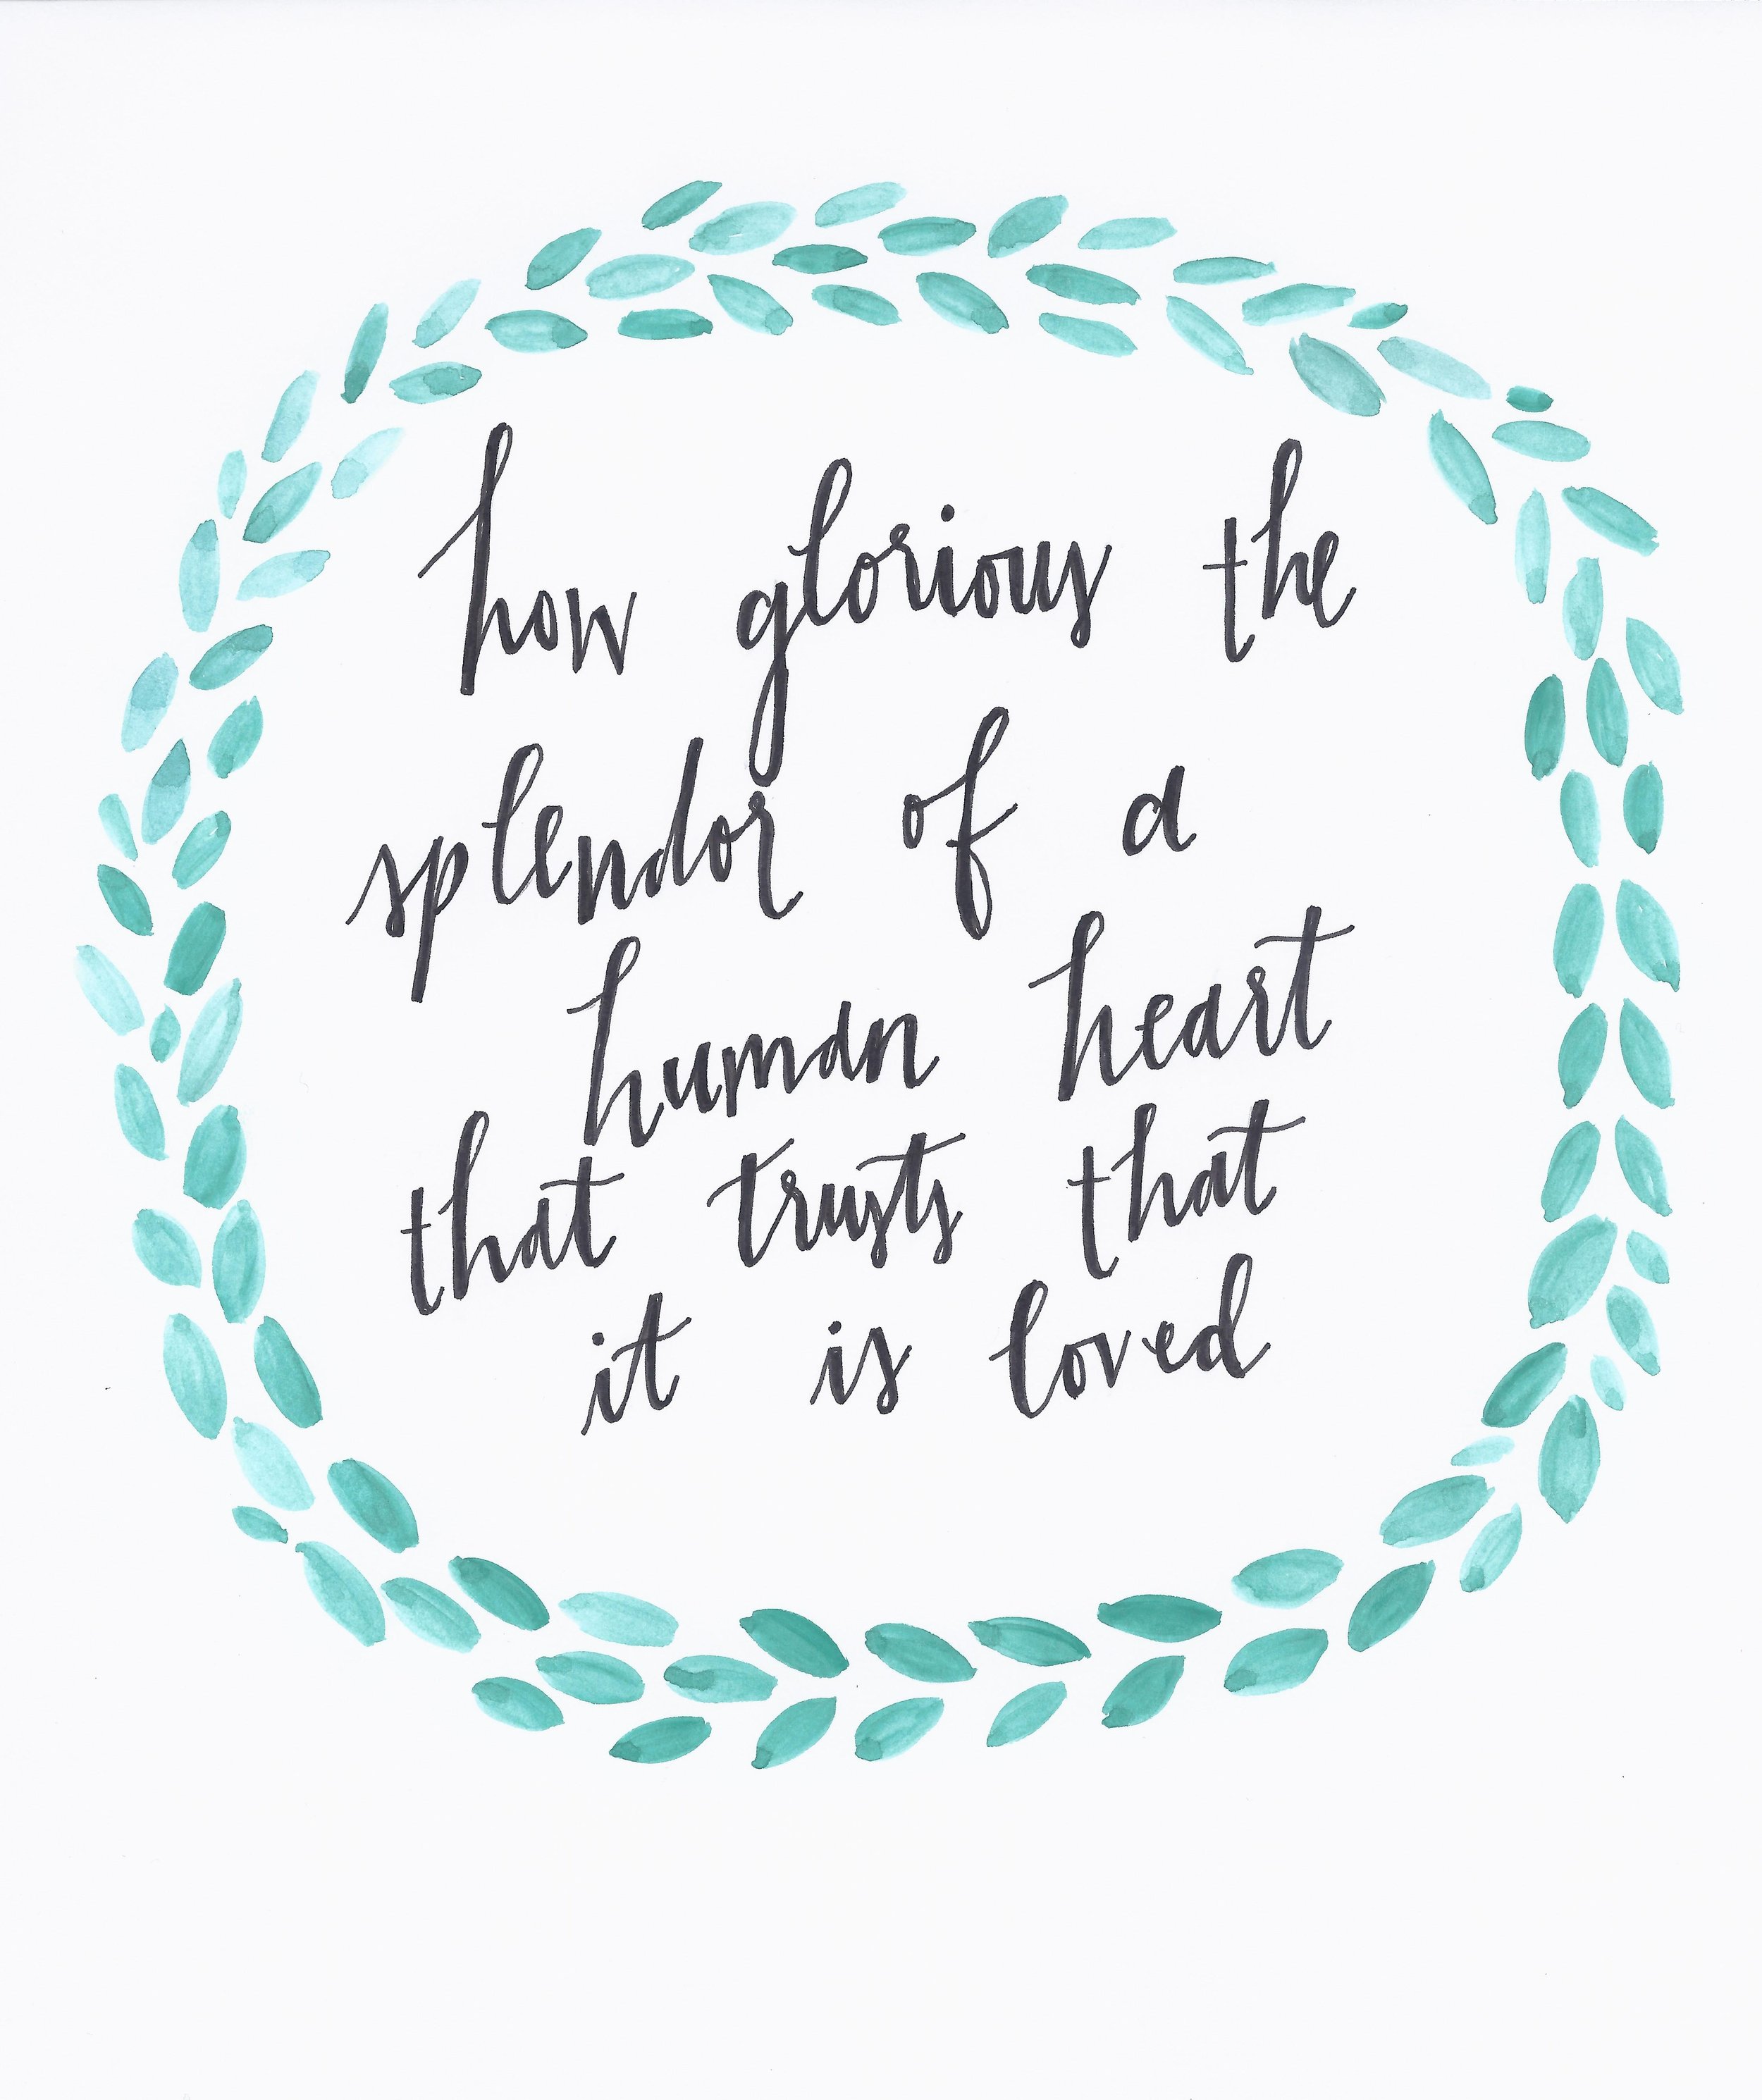 how glorious the
splendor of a
human heart
that trusts that
it is loved